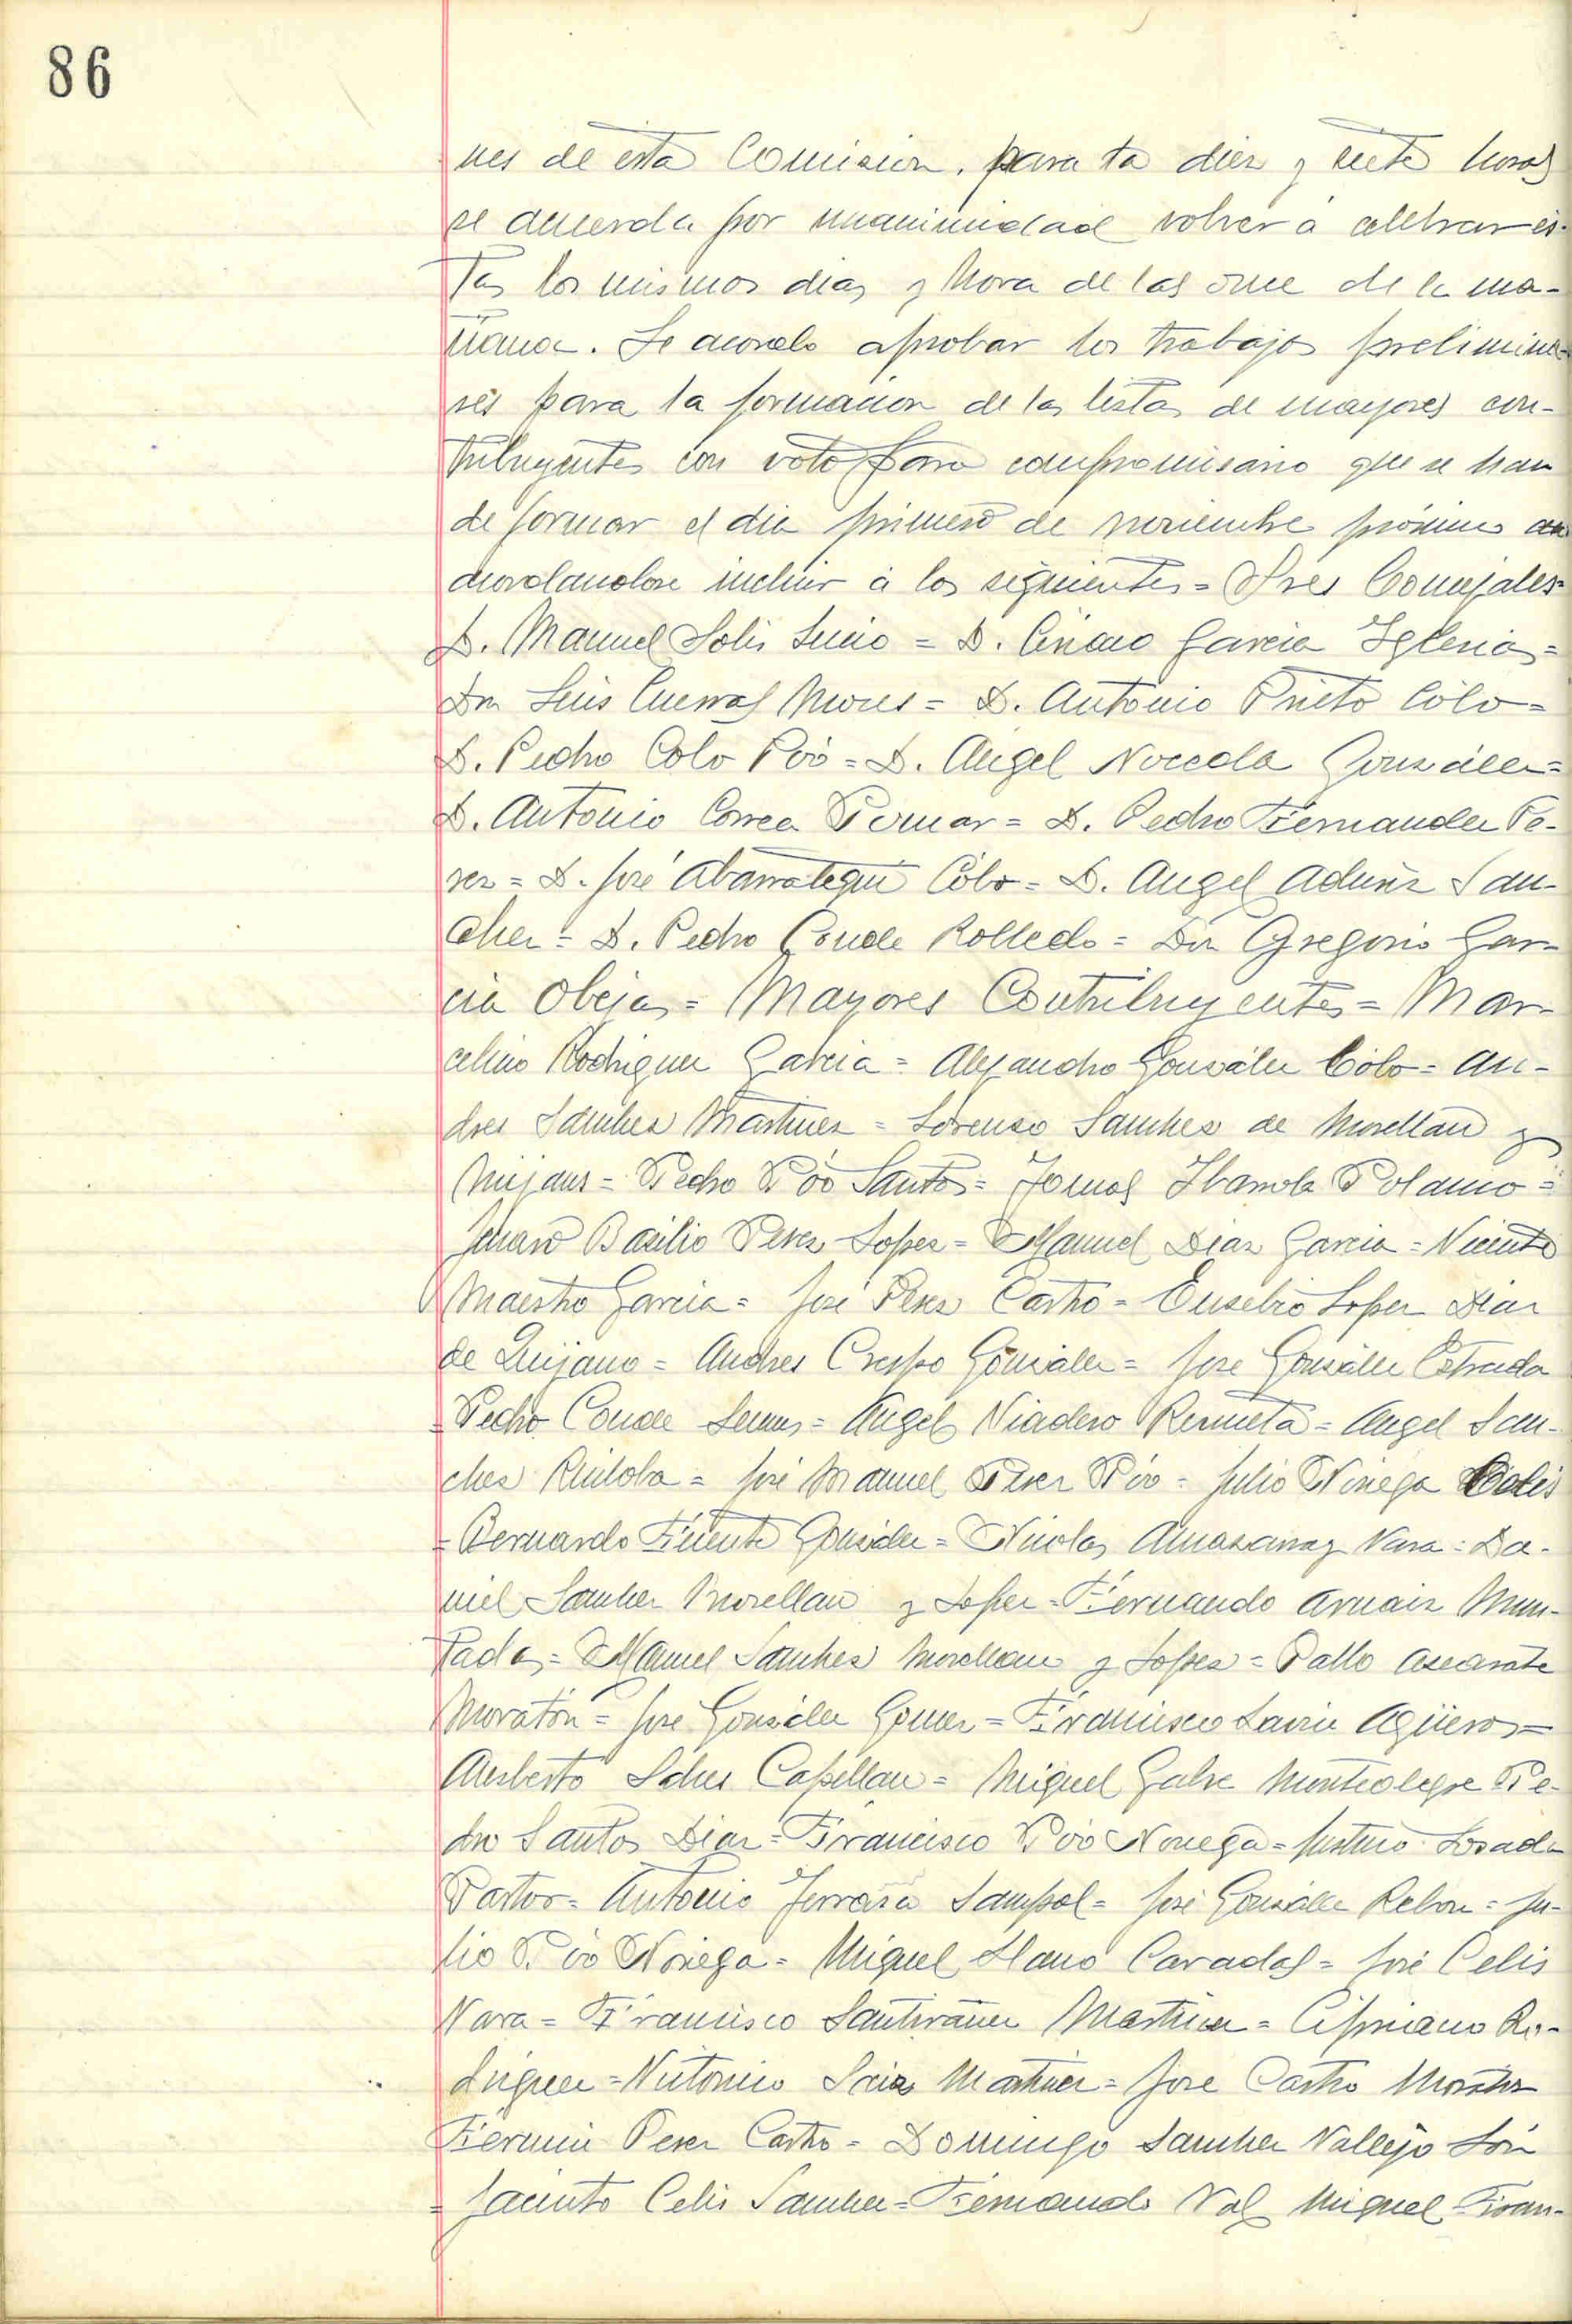 86
nes de esta Comision, para la diez y siete horas
se acuerda por unanimidad volver á celebrar és-
tas los mismos dias y hora de las once de la ma-
ñana. Se acordo aprobar los trabajos prelimina-
res para la formacion de las listas de mayores con-
tribuyentes con voto para compromisario que se han
de formar el dia primero de noviembre próximo a
cordandose incluir á los siguientes = Sres Concejales =
D. Manuel Solis = D. Garcia Iglesias =
Dn Luis Cuevas Mores = D. Antonio Prieto Cólo =
D. Pedro Colo Póo = D. Angel Noceda González =
D. Antonio Correa Pomar = D. Pedro Fernandez Pe-
rez = D. José Abarrategui Cólo = D. Angel Aduriz San-
chez = D. Pedro Conde Rolledo = Dn Gregorio Gar-
cia Obeja = Mayores Contribuyentes = Mar-
celino Rodriguez Garcia = Alejandro González Cólo = An-
dres Sanchez Martinez = Lorenzo Sanchez de Movellan y
Mijans = Pedro Póo Santos = Tomas Polanco =
Genaro Basilio Perez Lopez = Manuel Diaz Garcia = Vicente
Maestro Garcia = José Perez Castro = Eusebio Lopez Diaz
de Quijano = Andres Crespo González = José González Estrada
= Pedro Conde = Angel Viadero = Angel San-
chez Ruiloba = José Manuel Perez Póo = Julio Noriega Celis
= Bernardo Fuente González = Nicolas Vara = Da-
niel Sanchez Movellan y Lopez = Fernando Arnaiz Mun-
tadas = Manuel Sanchez Movellan y Lopez = Pablo Azcarate
Moraton = José González Gomez = Francisco Lavin Agüeros =
Miguel Galve Montealegre Pe-
dro Santos Diaz = Francisco Póo Noriega = Justino Losada
Pastor = Antonio Sampol = José González = Ju-
lio Póo Noriega = Miguel Llano = José Celis
Vara = Francisco Santivañez Martinez = Cipriano Ro-
driguez = Martinez = José Castro
Fermin Perez Castro = Domingo Sanchez Vallejo
= Jacinto Celis Sanchez = Fernando Val Miguel = Fran-